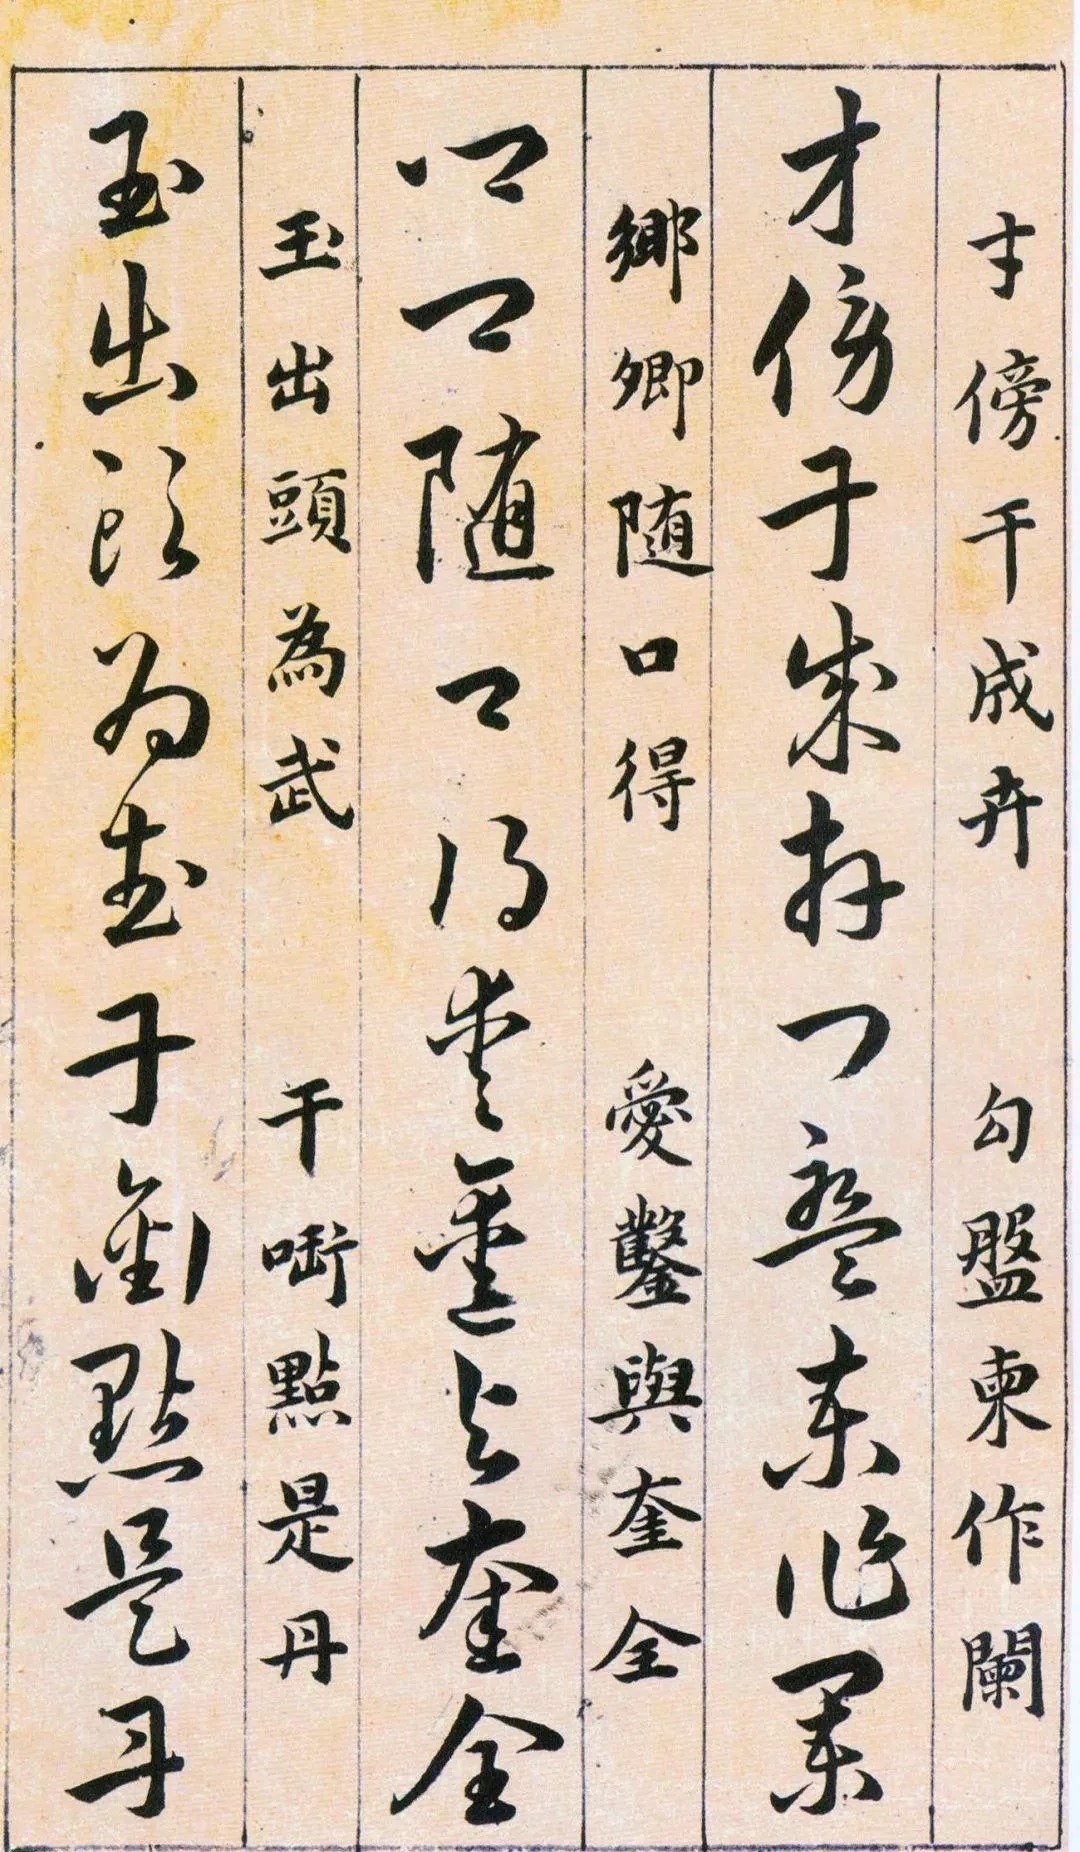 才傍干成卉 勾盤柬作闌
才傍干成卉勾盤柬作闌
鄉卿随口得 愛鑿與奎全
鄉卿随口得愛鑿與奎全
玉出頭為武 干啣點是丹
玉出頭為武干銜點是丹